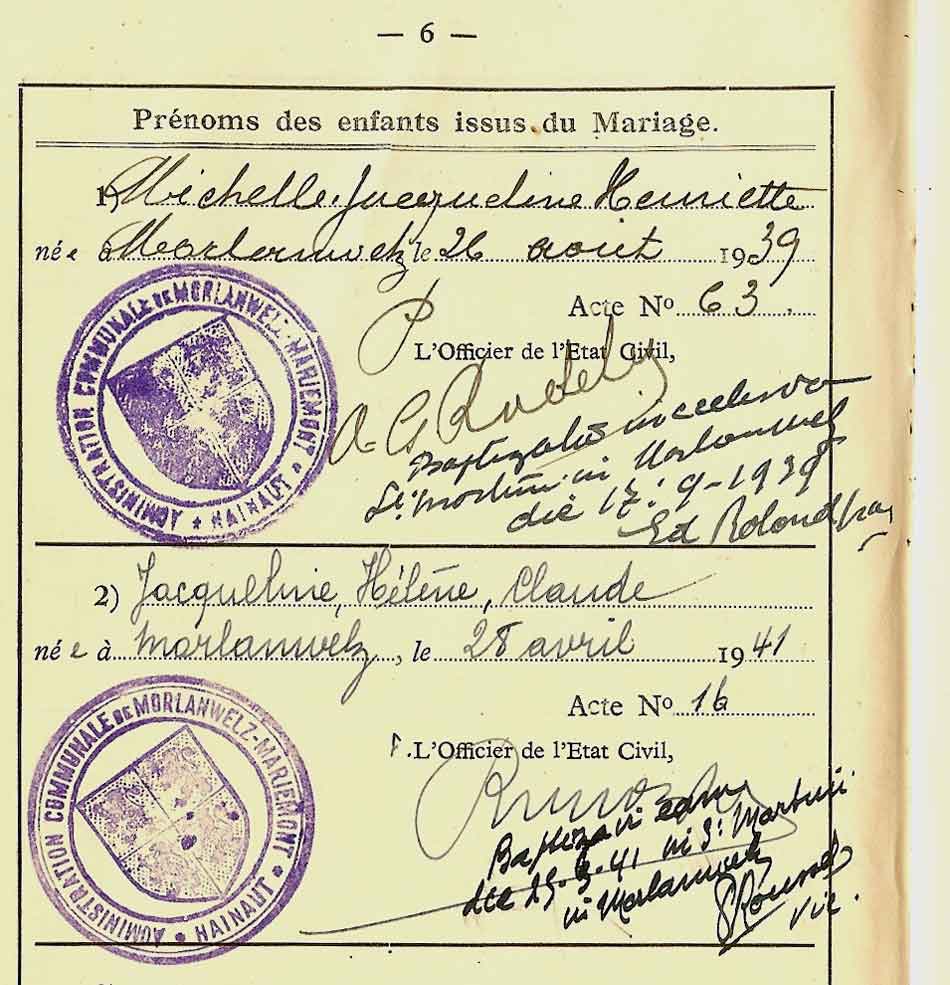 — 6 —
Prénoms des enfants issus du Mariage.
1) Michelle Jacqueline Henriette
née à Morlanwelz le 26 août 1939
Acte Nº 63.
L'Officier de l'Etat Civil,
ADMINISTRATION COMMUNALE DE MORLANWELZ-MARIEMONT
* HAINAUT *
in Morlanwelz
die 17-9-1939
Ed Roland
2) Jacqueline, Hélène, Claude
née à Morlanwelz, le 28 avril 1941
Acte Nº 16
P. L'Officier de l'Etat Civil,
ADMINISTRATION COMMUNALE DE MORLANWELZ-MARIEMONT
• HAINAUT •
Baptizavi eam
die 25.5.41 in St Martini
in Morlanwelz
Roussel
Vic.